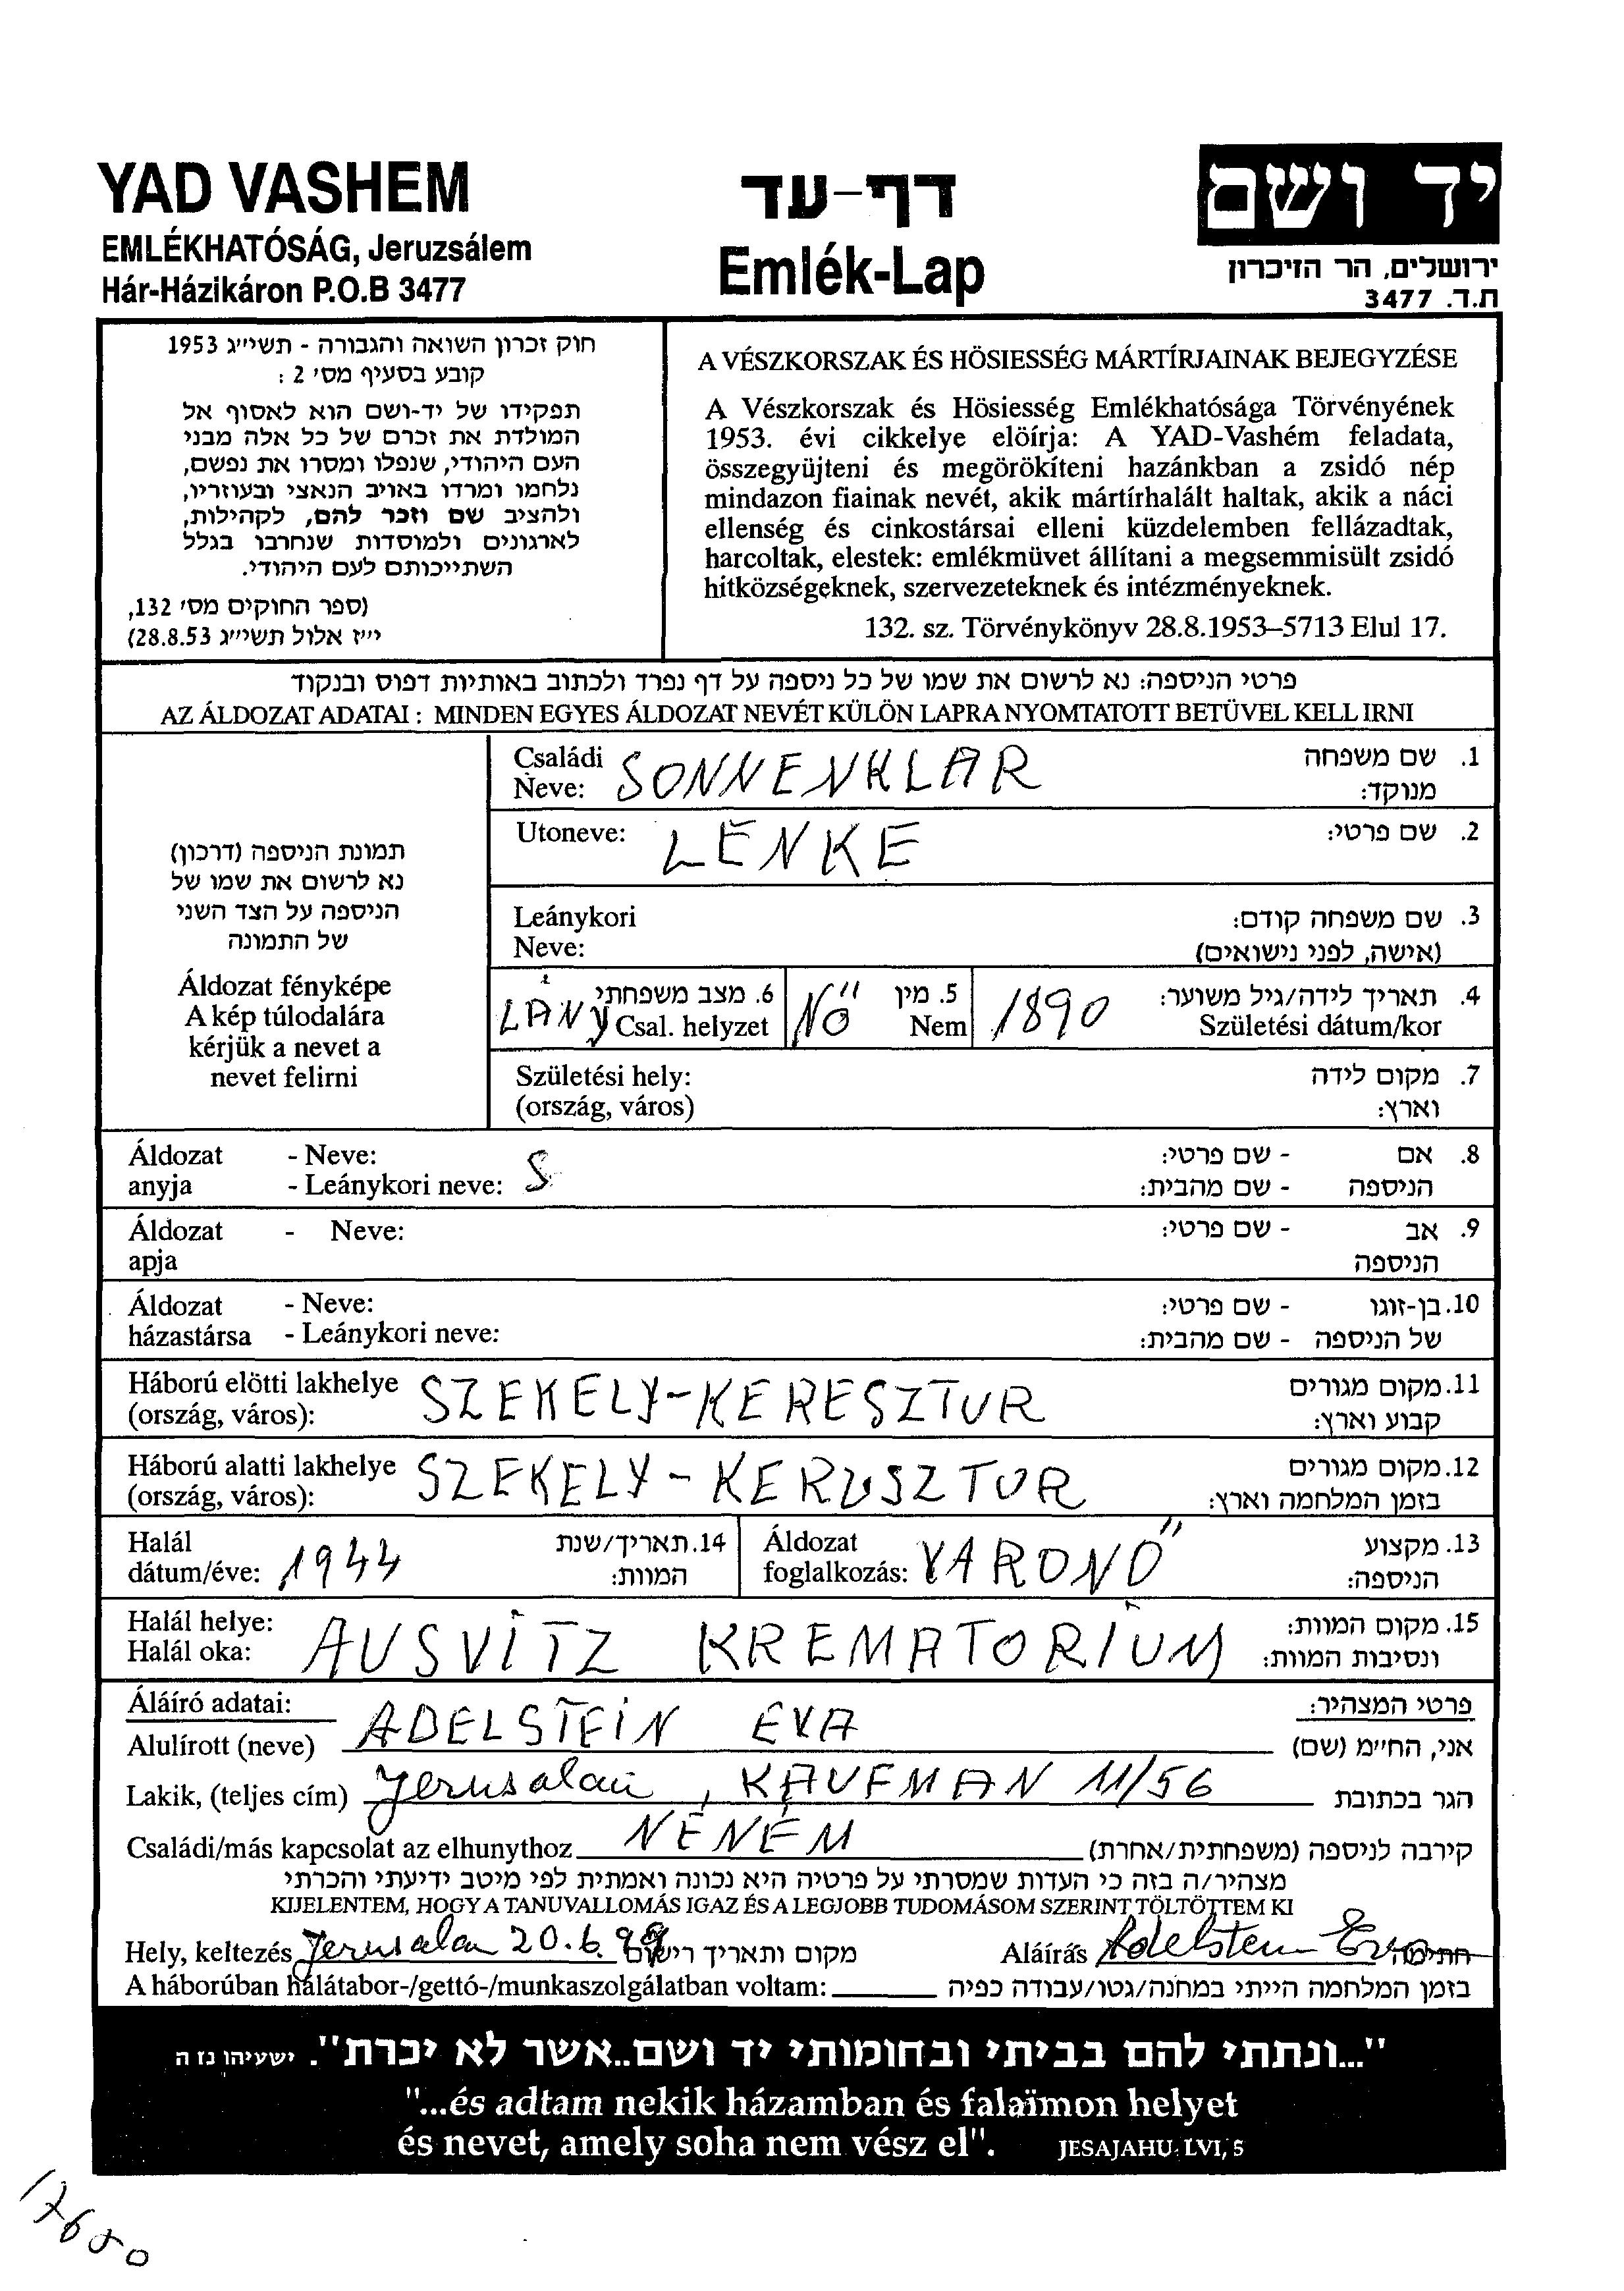 YAD VASHEM
EMLÉKHATÓSÁG, Jeruzsálem
Hár-Házikáron P.O.B 3477
דף-עד
Emlék-Lap
יד ושם
ירושלים, הר הזיכרון
ת.ד. 3477
חוק זכרון השואה והגבורה - תשי״ג 1953
קובע בסעיף מס׳ 2 :
תפקידו של יד-ושם הוא לאסוף אל
המולדת את זכרם של כל אלה מבני
העם היהודי, שנפלו ומסרו את נפשם,
נלחמו ומרדו באויב הנאצי ובעוזריו,
ולהציב שם וזכר להם, לקהילות,
לארגונים ולמוסדות שנחרבו בגלל
השתייכותם לעם היהודי.
(ספר החוקים מס׳ 132,
י״ז אלול תשי״ג 28.8.53)
A VÉSZKORSZAK ÉS HÖSIESSÉG MÁRTÍRJAINAK BEJEGYZÉSE
A Vészkorszak és Hösiesség Emlékhatósága Törvényének
1953. évi cikkelye elöírja: A YAD-Vashém feladata,
összegyüjteni és megörökíteni hazánkban a zsidó nép
mindazon fiainak nevét, akik mártírhalált haltak, akik a náci
ellenség és cinkostársai elleni küzdelemben fellázadtak,
harcoltak, elestek: emlékmüvet állítani a megsemmisült zsidó
hitközségeknek, szervezeteknek és intézményeknek.
132. sz. Törvénykönyv 28.8.1953–5713 Elul 17.
פרטי הניספה: נא לרשום את שמו של כל ניספה על דף נפרד ולכתוב באותיות דפוס ובנקוד
AZ ÁLDOZAT ADATAI : MINDEN EGYES ÁLDOZAT NEVÉT KÜLÖN LAPRA NYOMTATOTT BETÜVEL KELL IRNI
תמונת הניספה (דרכון)
נא לרשום את שמו של
הניספה על הצד השני
של התמונה
Áldozat fényképe
A kép túlodalára
kérjük a nevet a
nevet felirni
Családi Neve: SONNENKLAR 1. שם משפחה
מנוקד:
Utoneve: LENKE 2. שם פרטי:
Leánykori 3. שם משפחה קודם:
Neve: (אישה, לפני נישואים)
LÁNY 6. מצב משפחתי NŐ 5. מין 1890 4. תאריך לידה/גיל משוער:
Csal. helyzet Nem Születési dátum/kor
Születési hely: 7. מקום לידה
(ország, város) וארץ:
Áldozat - Neve: S - שם פרטי: 8. אם
anyja - Leánykori neve: - שם מהבית: הניספה
Áldozat - Neve: - שם פרטי: 9. אב
apja הניספה
Áldozat - Neve: - שם פרטי: 10. בן-זוגו
házastársa - Leánykori neve: - שם מהבית: של הניספה
Háború elötti lakhelye SZEKELY-KERESZTUR 11. מקום מגורים
(ország, város): קבוע וארץ:
Háború alatti lakhelye SZEKELY-KERUSZTUR 12. מקום מגורים
(ország, város): בזמן המלחמה וארץ:
Halál 14. תאריך/שנת Áldozat 13. מקצוע
dátum/éve: 1944 המוות: foglalkozás: VARONŐ הניספה:
Halál helye: AUSVITZ KREMATORIUM 15. מקום המוות:
Halál oka: ונסיבות המוות:
Áláíró adatai: פרטי המצהיר:
Alulírott (neve) ADELSTEIN EVA אני, החי״מ (שם)
Lakik, (teljes cím) Jerusalai, KAUFMAN 11/56 הגר בכתובת
Családi/más kapcsolat az elhunythoz NÉNÉM קירבה לניספה (משפחתית/אחרת)
מצהיר/ה בזה כי העדות שמסרתי על פרטיה היא נכונה ואמתית לפי מיטב ידיעתי והכרתי
KIJELENTEM, HOGY A TANUVALLOMÁS IGAZ ÉS A LEGJOBB TUDOMÁSOM SZERINT TÖLTÖTTEM KI
Hely, keltezés Jerusalai 20.6.99 מקום ותאריך רישום Aláírás Adelstein Eva חתימה
A háborúban hálátabor-/gettó-/munkaszolgálatban voltam: בזמן המלחמה הייתי במחנה/גטו/עבודה כפיה
"...ונתתי להם בביתי ובחומותי יד ושם..אשר לא יכרת". ישעיהו נז ה
"...és adtam nekik házamban és falaïmon helyet
és nevet, amely soha nem vész el". JESAJAHU: LVI, 5
17680